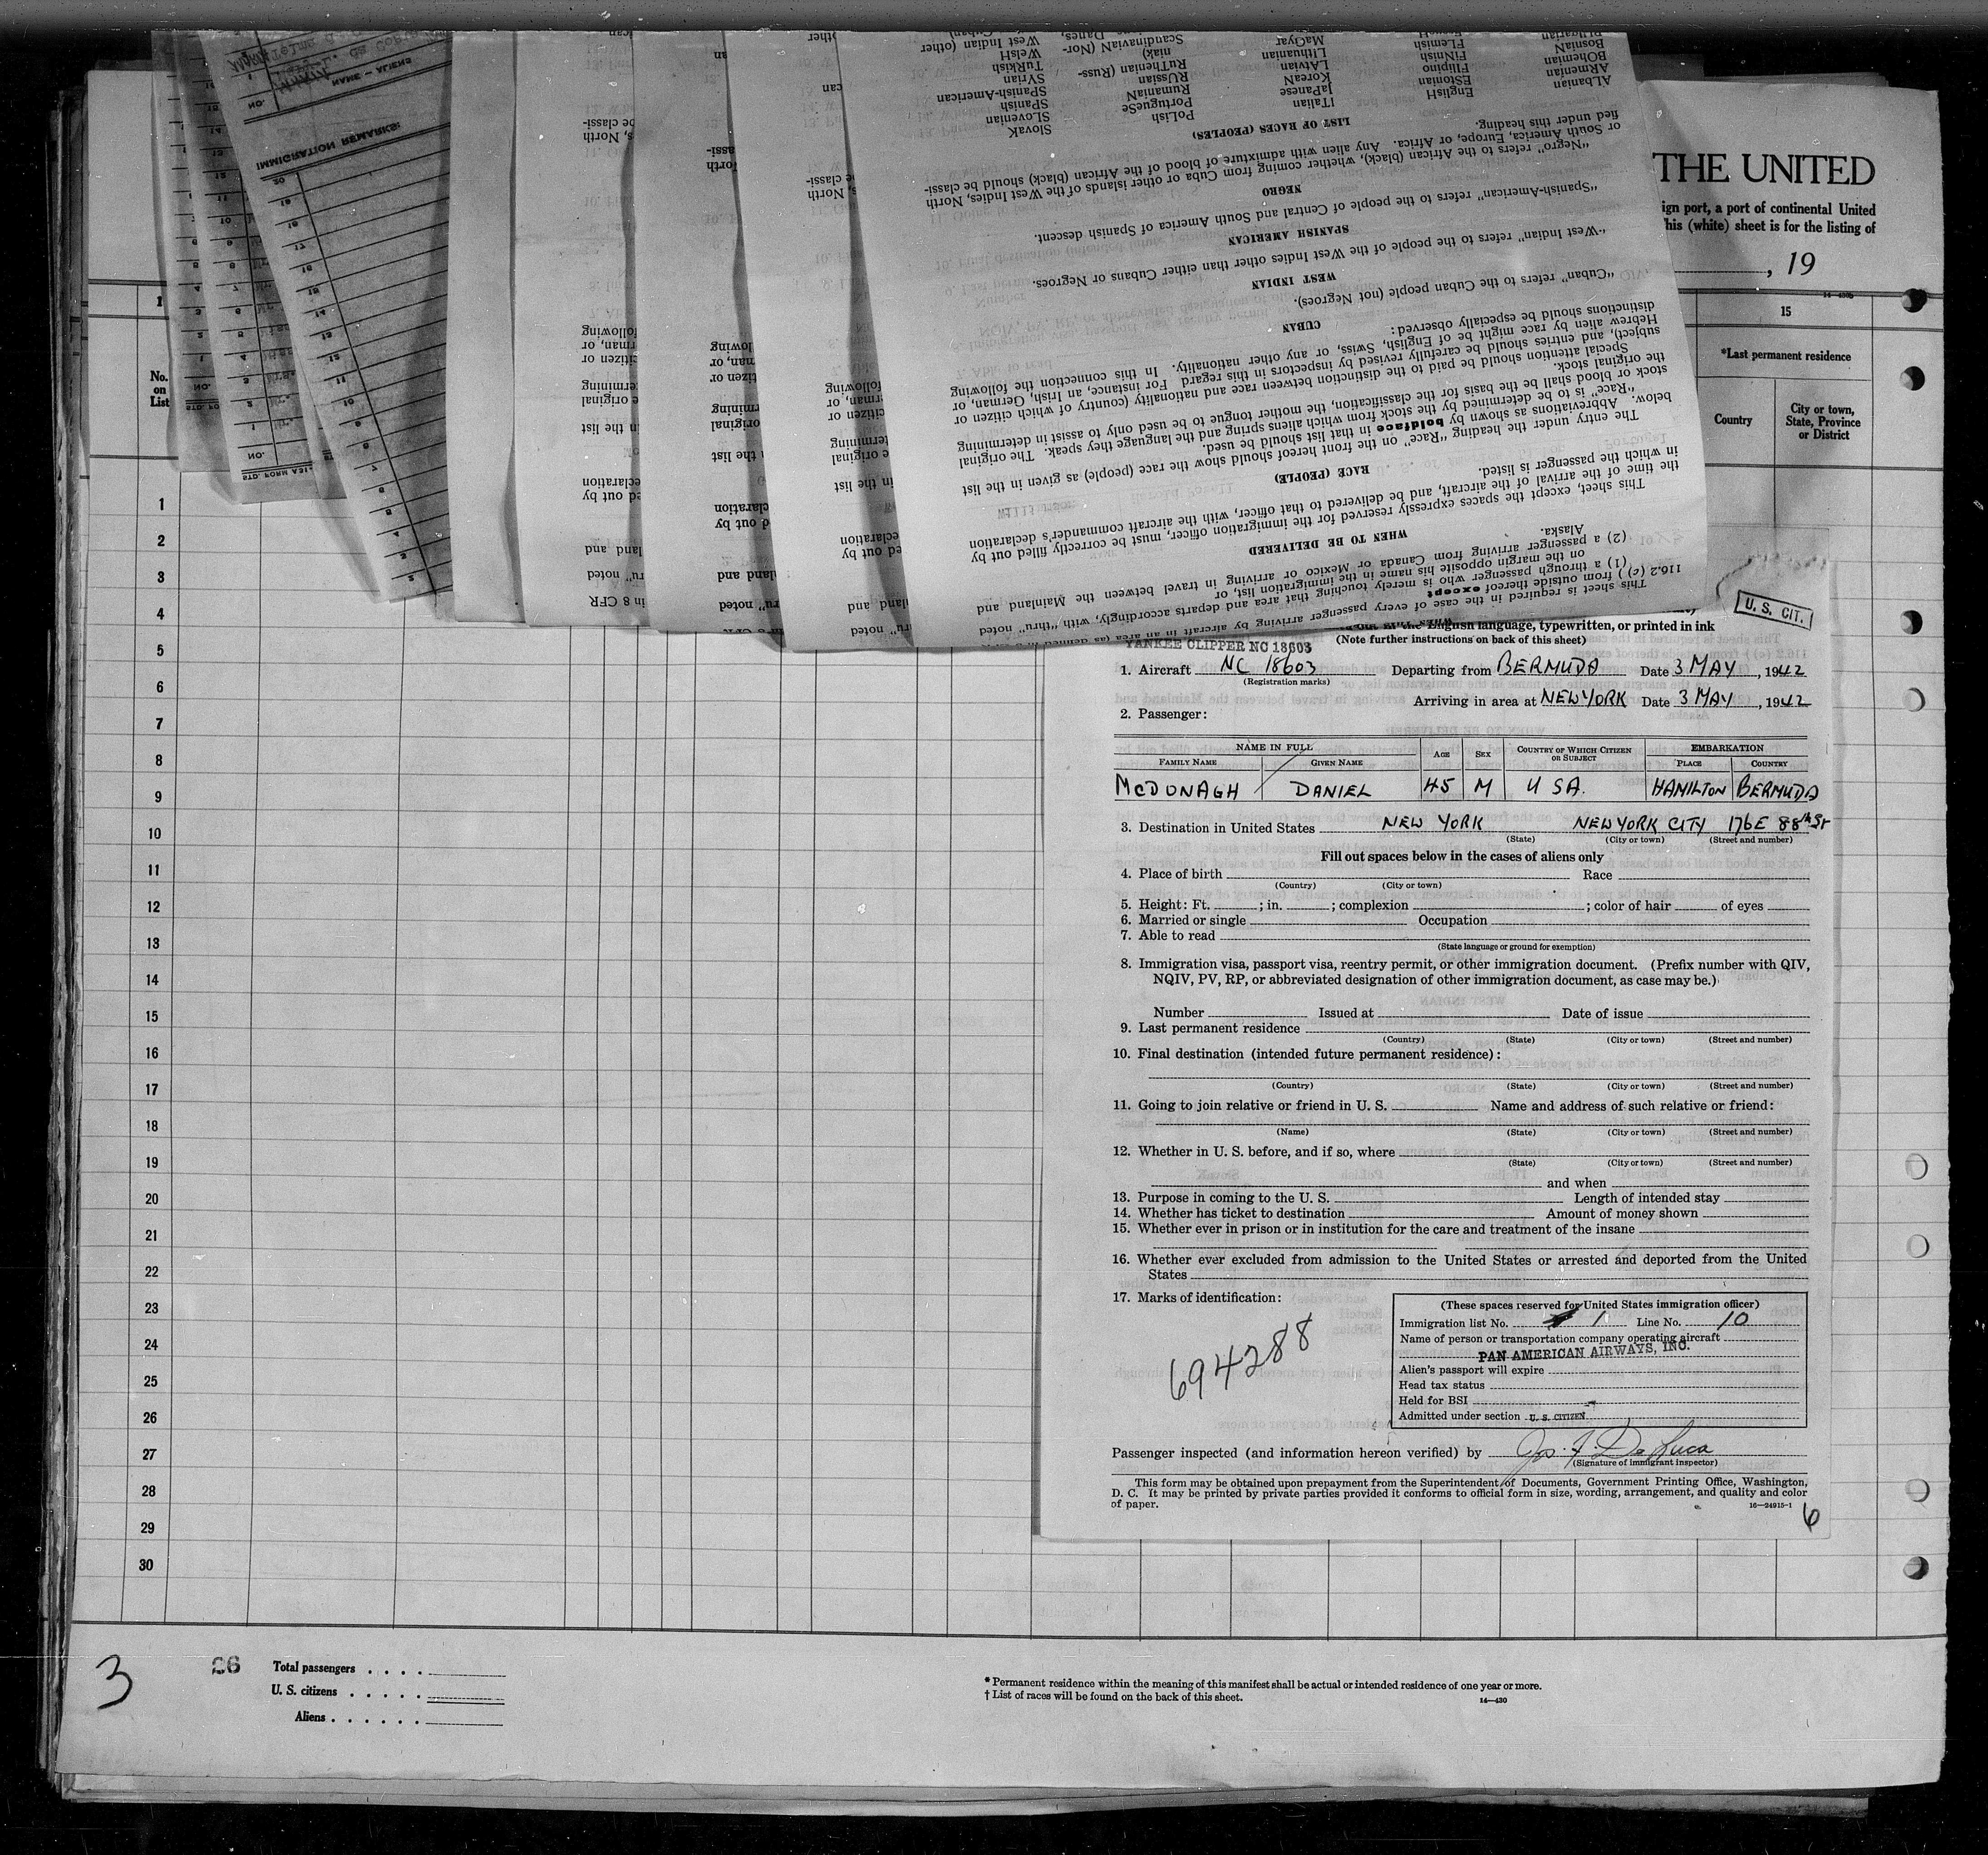 THE UNITED
ign port, a port of continental United
This (white) sheet is for the listing of
, 19
15
*Last permanent residence
No. on List
Country
City or town, State, Province or District
IMMIGRATION REMARKS:
NO.
NAME — ALIENS
This sheet is required in the case of every passenger arriving by aircraft in an area (as defined in 8 CFR
116.2 (c) ) from outside thereof except
(1) a through passenger who is merely touching that area and departs accordingly, with "thru" noted
on the margin opposite his name in the immigration list, or
(2) a passenger arriving from Canada or Mexico or arriving in travel between the Mainland and
Alaska.
WHEN TO BE DELIVERED
This sheet, except the spaces expressly reserved for the immigration officer, must be correctly filled out by
the time of the arrival of the aircraft, and be delivered to that officer, with the aircraft commander's declaration
in which the passenger is listed.
RACE (PEOPLE)
The entry under the heading "Race" on the front hereof should show the race (people) as given in the list
below. Abbreviations as shown by boldface in that list should be used.
"Race" is to be determined by the stock from which aliens spring and the language they speak. The original
stock or blood shall be the basis for the classification, the mother tongue to be used only to assist in determining
the original stock.
Special attention should be paid to the distinction between race and nationality (country of which citizen or
subject), and entries should be carefully revised by inspectors in this regard For instance, an Irish, German, or
Hebrew alien by race might be of English, Swiss, or any other nationality. In this connection the following
distinctions should be especially observed:
CUBAN
"Cuban" refers to the Cuban people (not Negroes).
WEST INDIAN
"West Indian" refers to the people of the West Indies other than either Cubans or Negroes.
SPANISH AMERICAN
"Spanish-American" refers to the people of Central and South America of Spanish descent.
NEGRO
"Negro" refers to the African (black), whether coming from Cuba or other islands of the West Indies, North
or South America, Europe, or Africa. Any alien with admixture of blood of the African (black) should be classi-
fied under this heading.
LIST OF RACES (PEOPLES)
ALbanian EnglisH ITalian PoLish SlovaK
ARmenian EStonian JaPanese PortugueSe SLovenian
BOhemian Filipino KoreaN RumaniaN SPanish
BosniaN FiNnish LAtvian RUssian SPanish-American
BUlgarian FLemish Lithuanian RuThenian (Russ- SYrian
MaGyar niak) TurKish
ScandinaviaN (Nor- WelsH
Danes, West Indian (other
U. S. CIT.
English language, typewritten, or printed in ink
(Note further instructions on back of this sheet)
YANKEE CLIPPER NC 18603
1. Aircraft NC 18603 Departing from BERMUDA Date 3 MAY, 1942
(Registration marks)
Arriving in area at NEW YORK Date 3 MAY, 1942
2. Passenger:
NAME IN FULL AGE SEX COUNTRY OF WHICH CITIZEN OR SUBJECT EMBARKATION
FAMILY NAME GIVEN NAME PLACE COUNTRY
McDONAGH DANIEL 45 M U SA. HAMILTON BERMUDA
3. Destination in United States NEW YORK NEW YORK CITY 176 E 88th St
(State) (City or town) (Street and number)
Fill out spaces below in the cases of aliens only
4. Place of birth Race
(Country) (City or town)
5. Height: Ft. ; in. ; complexion ; color of hair of eyes
6. Married or single Occupation
7. Able to read
(State language or ground for exemption)
8. Immigration visa, passport visa, reentry permit, or other immigration document. (Prefix number with QIV,
NQIV, PV, RP, or abbreviated designation of other immigration document, as case may be.)
Number Issued at Date of issue
9. Last permanent residence
(Country) (State) (City or town) (Street and number)
10. Final destination (intended future permanent residence):
(Country) (State) (City or town) (Street and number)
11. Going to join relative or friend in U. S. Name and address of such relative or friend:
(Name) (State) (City or town) (Street and number)
12. Whether in U. S. before, and if so, where
(State) (City or town) (Street and number)
and when
13. Purpose in coming to the U. S. Length of intended stay
14. Whether has ticket to destination Amount of money shown
15. Whether ever in prison or in institution for the care and treatment of the insane
16. Whether ever excluded from admission to the United States or arrested and deported from the United
States
17. Marks of identification:
694288
(These spaces reserved for United States immigration officer)
Immigration list No. 1 Line No. 10
Name of person or transportation company operating aircraft
PAN AMERICAN AIRWAYS, INC.
Alien's passport will expire
Head tax status
Held for BSI
Admitted under section U. S. CITIZEN
Passenger inspected (and information hereon verified) by Jos. F. De Luca
(Signature of immigrant inspector)
This form may be obtained upon prepayment from the Superintendent of Documents, Government Printing Office, Washington,
D. C. It may be printed by private parties provided it conforms to official form in size, wording, arrangement, and quality and color
of paper.
16—24915-1
6
1
2
3
4
5
6
7
8
9
10
11
12
13
14
15
16
17
18
19
20
21
22
23
24
25
26
27
28
29
30
3
26
Total passengers
U. S. citizens
Aliens
* Permanent residence within the meaning of this manifest shall be actual or intended residence of one year or more.
† List of races will be found on the back of this sheet.
14—430